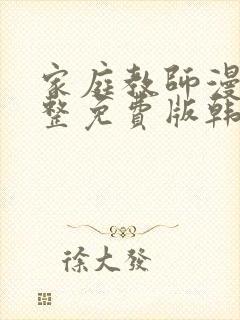 家庭教師漫
整免費版韩
徐大發